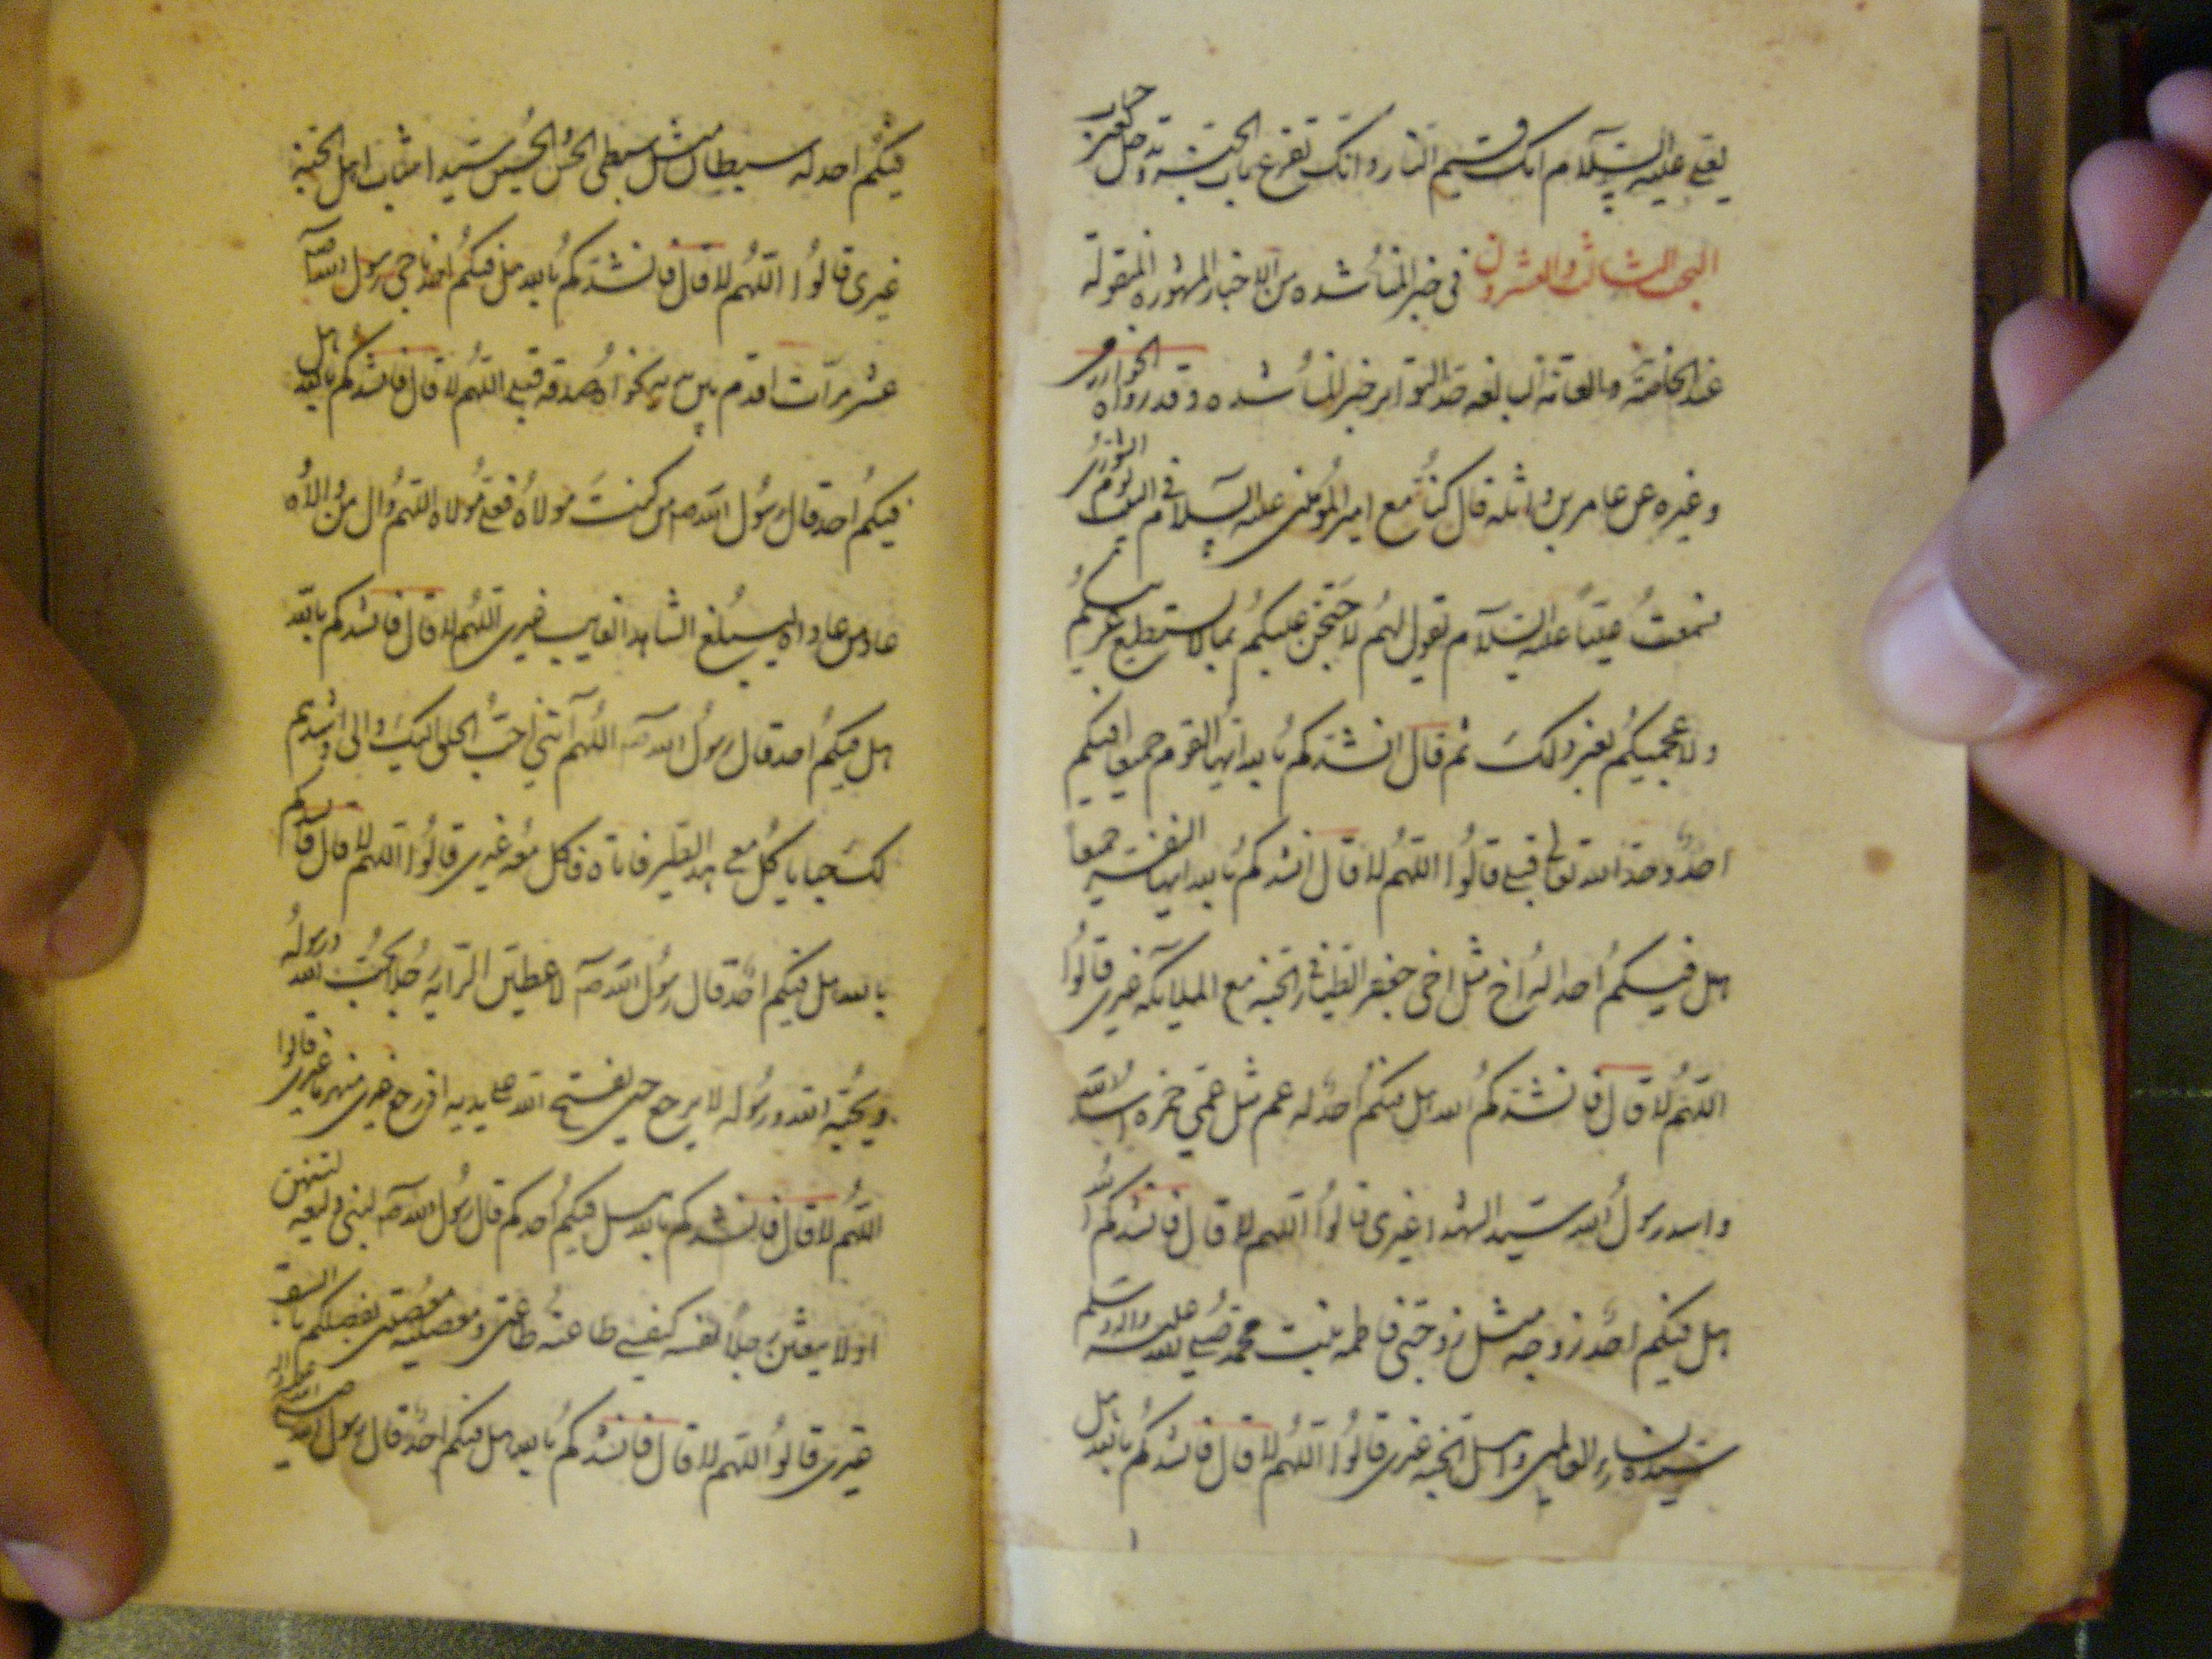 لعلي عليه السلام انك قسيم النار وانك تقرع باب الجنة وتدخل بغير حساب
البحث الثالث والعشرون في خبر المناشده من الاخبار المشهوره المنقولة
عند الخاصة والعامة البالغه حد التواتر خبر المناشده وقد رواه الخوارزمي
وغيره عن عامر بن واثله قال كنت مع امير المؤمنين عليه السلام في البيت يوم الشورى
فسمعت عليا عليه السلام يقول لهم لاحتجن عليكم بما لا يستطيع عربيكم
ولا عجميكم بغير ذلك ثم قال انشدكم بالله ايها القوم جميعا افيكم
احد وحد الله تعالى قبلي قالوا اللهم لا قال انشدكم بالله ايها النفر جميعا
هل فيكم احد له اخ مثل اخي جعفر الطيار في الجنة مع الملايكه غيري قالوا
اللهم لا قال فانشدكم الله هل فيكم احد له عم مثل عمي حمزه اسد الله
واسد رسول الله سيد الشهدا غيري قالوا اللهم لا قال فانشدكم الله
هل فيكم احد زوجه مثل زوجتي فاطمه بنت محمد صلى الله عليه واله وسلم
سيدة نساء العالمين واهل الجنه غيري قالوا اللهم لا قال فانشدكم بالله هل
فيكم احد له سبطان مثل سبطي الحسن الحسين سيدا شباب اهل الجنة
غيري قالوا اللهم لا قال فانشدكم بالله هل فيكم احد ناجى رسول الله ص
عشر مرات اقدم بين نجواه صدقه قبلي اللهم لا قال فانشدكم بالله هل
فيكم احد قال رسول الله ص من كنت مولاه فعلي مولاه اللهم وال من والاه
عاد من عاداه ليبلغ الشاهد الغايب غيري اللهم لا قال فانشدكم بالله
هل فيكم احد قال رسول الله ص اللهم آتني احب الخلق اليك والي واشدهم
لك حبا ياكل معي هذ الطير فاتاه فاكل معه غيري قالوا اللهم لا قال فانشدكم
بالله هل فيكم احد قال رسول الله ص لاعطين الراية رجلا يحب الله ورسوله
ويحبه الله ورسوله لا يرجع حتى يفتح الله على يديه اذ رجع غيري منهزما غيري قالوا
اللهم لا قال فانشدكم بالله هل فيكم احدكم قال رسول الله ص لبني وليعه لتنتهن
او لا بعثن رجلا نفسه كنفسي طاعته طاعتي ومعصيته معصيتي يفصلكم بالسيف
غيري قالوا اللهم لا قال فانشدكم بالله هل فيكم احد قال رسول الله صلى الله عليه واله